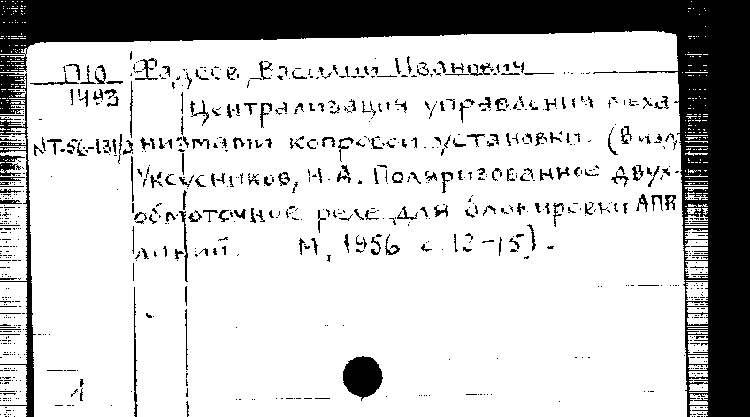 П10 Фадеев, Василий Иванович
1493
Централизация управления меха-
NT-56-131/2 низмами копровой установки. (В изд.
Уксусников, Н.А. Поляризованное двух-
обмоточное реле для блокировки АПВ
линий. М, 1956 с. 12-15).
1